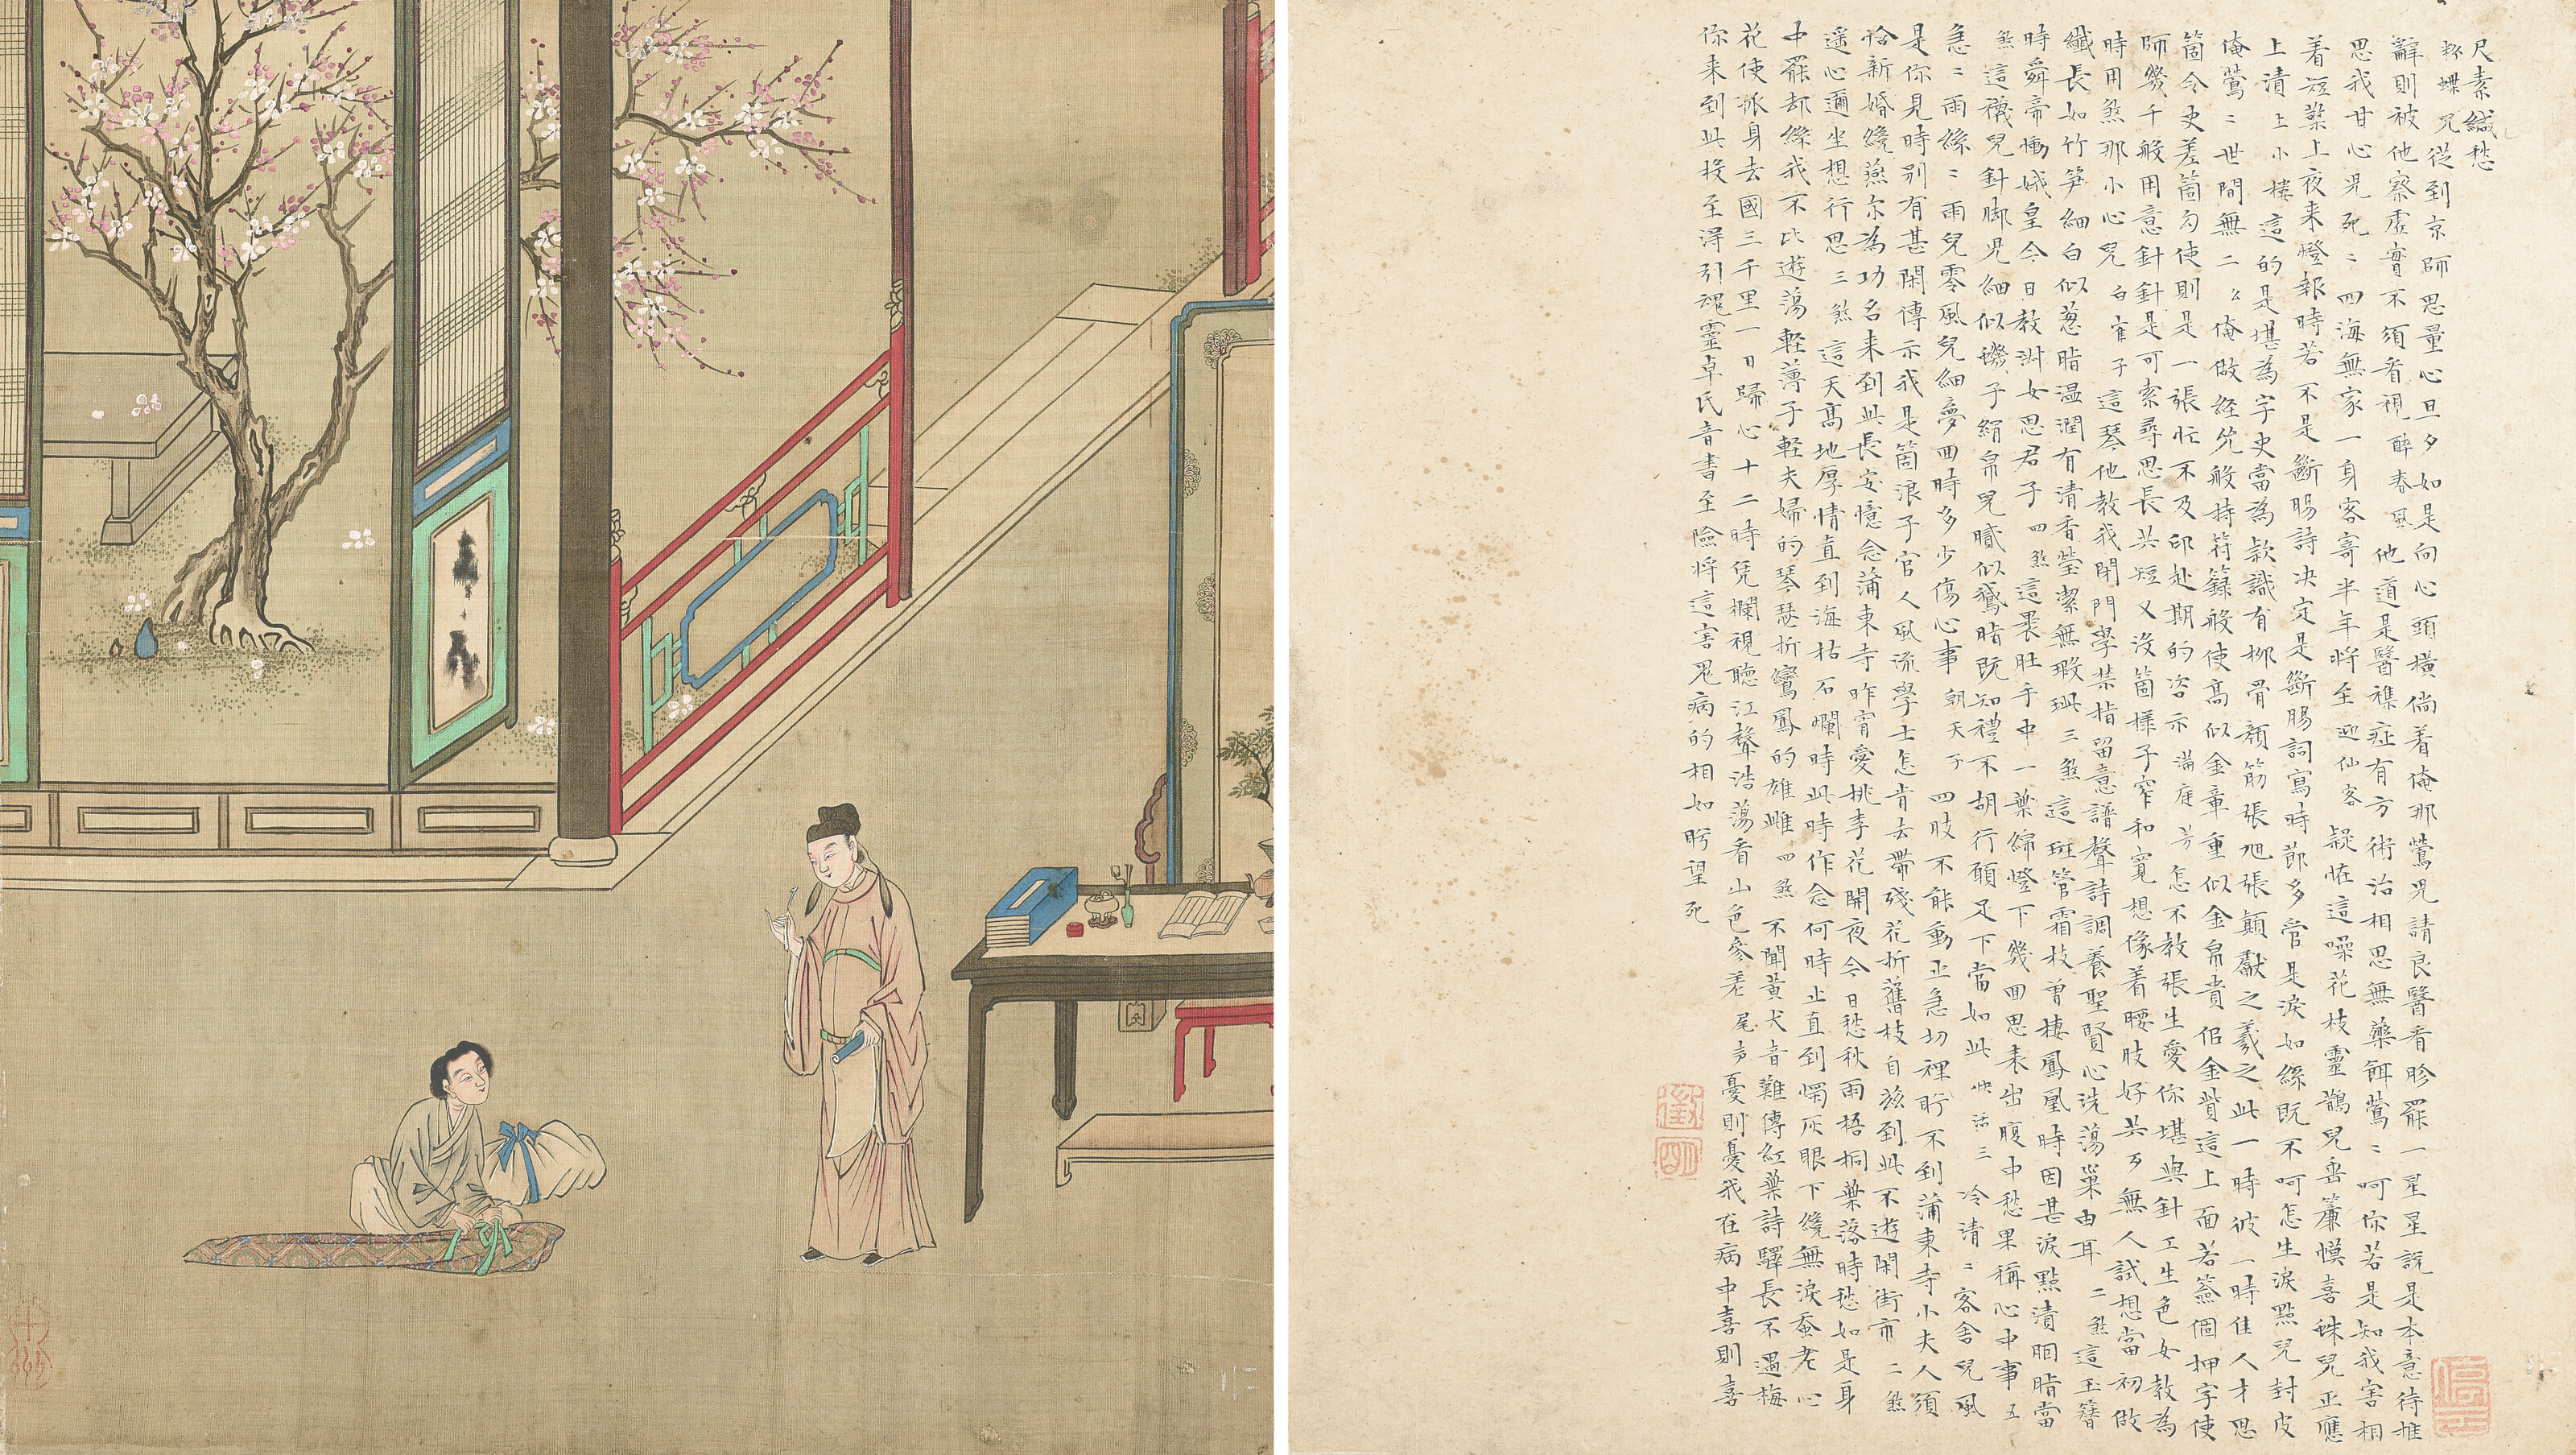 尺素緘愁
粉蝶兒從到京師思量心旦夕如是向心頭橫倘着俺那鶯兒請良醫看胗罷一星星說是本意待推
辭則被他察虛實不須看視醉春風他道是醫襍症有方術治相思無藥餌鶯〻呵你若是知我害相
思我甘心兒死〻四海無家一身客寄半年將至迎仙客疑恠這噪花枝靈鵲兒垂簾幙喜蛛兒正應
着短檠上夜来燈報時若不是斷腸詩決定是斷腸詞寫時節多管是淚如絲既不呵怎生淚點兒封皮
上漬上小樓這的是堪為字史當為款識有柳骨顏筋張旭張顛獻之羲之此一時彼一時佳人才思
俺鶯〻世間無二幺俺做經咒般持符籙般使高似金章重似金帛貴佀金貲這上面若簽個押字使
箇令史差箇勾使則是一張忙不及印赴期的咨示滿庭芳怎不教張生愛你堪與針工生色女教為
師幾千般用意針針是可索尋思長共短又沒箇樣子窄和寬想像着腰肢好共歹無人試想當初做
時用煞那小心兒白雀子這琴他教我閉門學禁指留意譜聲詩調養聖賢心洗蕩巢由耳二煞這玉簪
纖長如竹笋細白似葱脂温潤有清香瑩潔無瑕玼三煞這斑管霜枝曾棲鳳凰時因甚淚點漬胭脂當
時舜帝慟娥皇今日教淑女思君子四煞這裹肚手中一葉綿燈下幾回思表出腹中愁果稱心中事五
煞這襪兒針脚兒細似蟣子絹帛兒膩似鵞脂既知禮不胡行願足下當如此快活三冷清〻客舍兒風
急〻雨絲〻雨兒零風兒細夢回時多少傷心事朝天子四肢不能動止急切裡盻不到蒲東寺小夫人須
是你見時别有甚閑傳示我是箇浪子官人風流學士怎肯去帶殘花折舊枝自茲到此不遊閑街市二煞
恰新婚纔燕尔為功名来到此長安憶念蒲東寺昨宵愛桃李花開夜今日愁秋雨梧桐葉落時愁如是身
遥心邇坐想行思三煞這天髙地厚情直到海枯石爛時此時作念何時止直到燭灰眼下纔無淚蚕老心
中罷却絲我不比遊蕩輕薄子輕夫婦的琴瑟折鸞鳳的雄雌四煞不聞黄犬音難傳紅葉詩驛長不遇梅
花使孤身去國三千里一日歸心十二時凭欄視聽江聲浩蕩看山色參差尾声憂則憂我在病中喜則喜
你来到此投至得引魂靈卓氏音書至險將這害鬼病的相如盻望死
徵
明